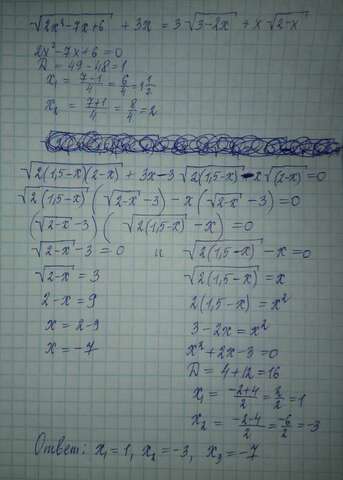 √(2x²-7x+6) + 3x = 3√(3-2x) + x√(2-x)
2x²-7x+6=0
D = 49-48=1
x₁ = (7-1)/4 = 6/4 = 1 1/2
x₂ = (7+1)/4 = 8/4 = 2
√(2(1,5-x)(2-x)) + 3x - 3√(2(1,5-x)) - x√(2-x) = 0
√(2(1,5-x)) (√(2-x) - 3) - x(√(2-x) - 3) = 0
(√(2-x) - 3) (√(2(1,5-x)) - x) = 0
√(2-x) - 3 = 0 и √(2(1,5-x)) - x = 0
√(2-x) = 3 √(2(1,5-x)) = x
2-x = 9 2(1,5-x) = x²
x = 2-9 3-2x = x²
x = -7 x²+2x-3=0
D = 4+12=16
x₁ = (-2+4)/2 = 2/2 = 1
x₂ = (-2-4)/2 = -6/2 = -3
Ответ: x₁=1, x₂=-3, x₃=-7